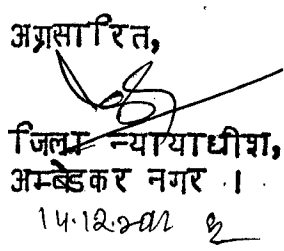 अग्रसारित,
जिला न्यायाधीश,
अम्बेडकर नगर ।
14.12.201